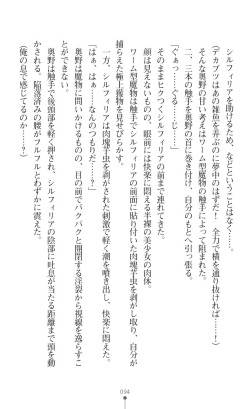 シルフィリアを助けるため、などということはなく……。
（デカカツはあの雑魚を弄ぶのに夢中のはずだ！　全力で横を通り抜ければ……）
そんな奥野の甘い考えはワーム型魔物の触手によって阻まれた。
一、二本の触手を奥野の首に巻き付け、自分のもとへ引っ張る。
「ぐぁっ……ぐるじ……」
そのままヒクつくシルフィリアの前まで連れてきた。
顔は見えないものの、眼前には快楽に悶える半裸の美少女の肉体。
ワーム型魔物は触手でシルフィリアの前面に貼り付いた肉塊芋虫を剥がし、自分が
捕らえた極上獲物を見せびらかす。
一方、シルフィリアは肉塊芋虫を剥がされた刺激で軽く潮を噴き出し、快楽に悶えた。
「はぁ、はぁ……なっ、なんのつもりだ……？」
奥野は魔物に問いかけたものの、目の前でパクパクと開閉する淫裂から視線を逸らすこ
とができない。
奥野は触手で後頭部を軽く押され、シルフィリアの陰部に吐息が当たる距離まで頭を動
かされる。陥落済みの腰がフルフルとわずかに震えた。
（俺の息で感じてるのか……）
094